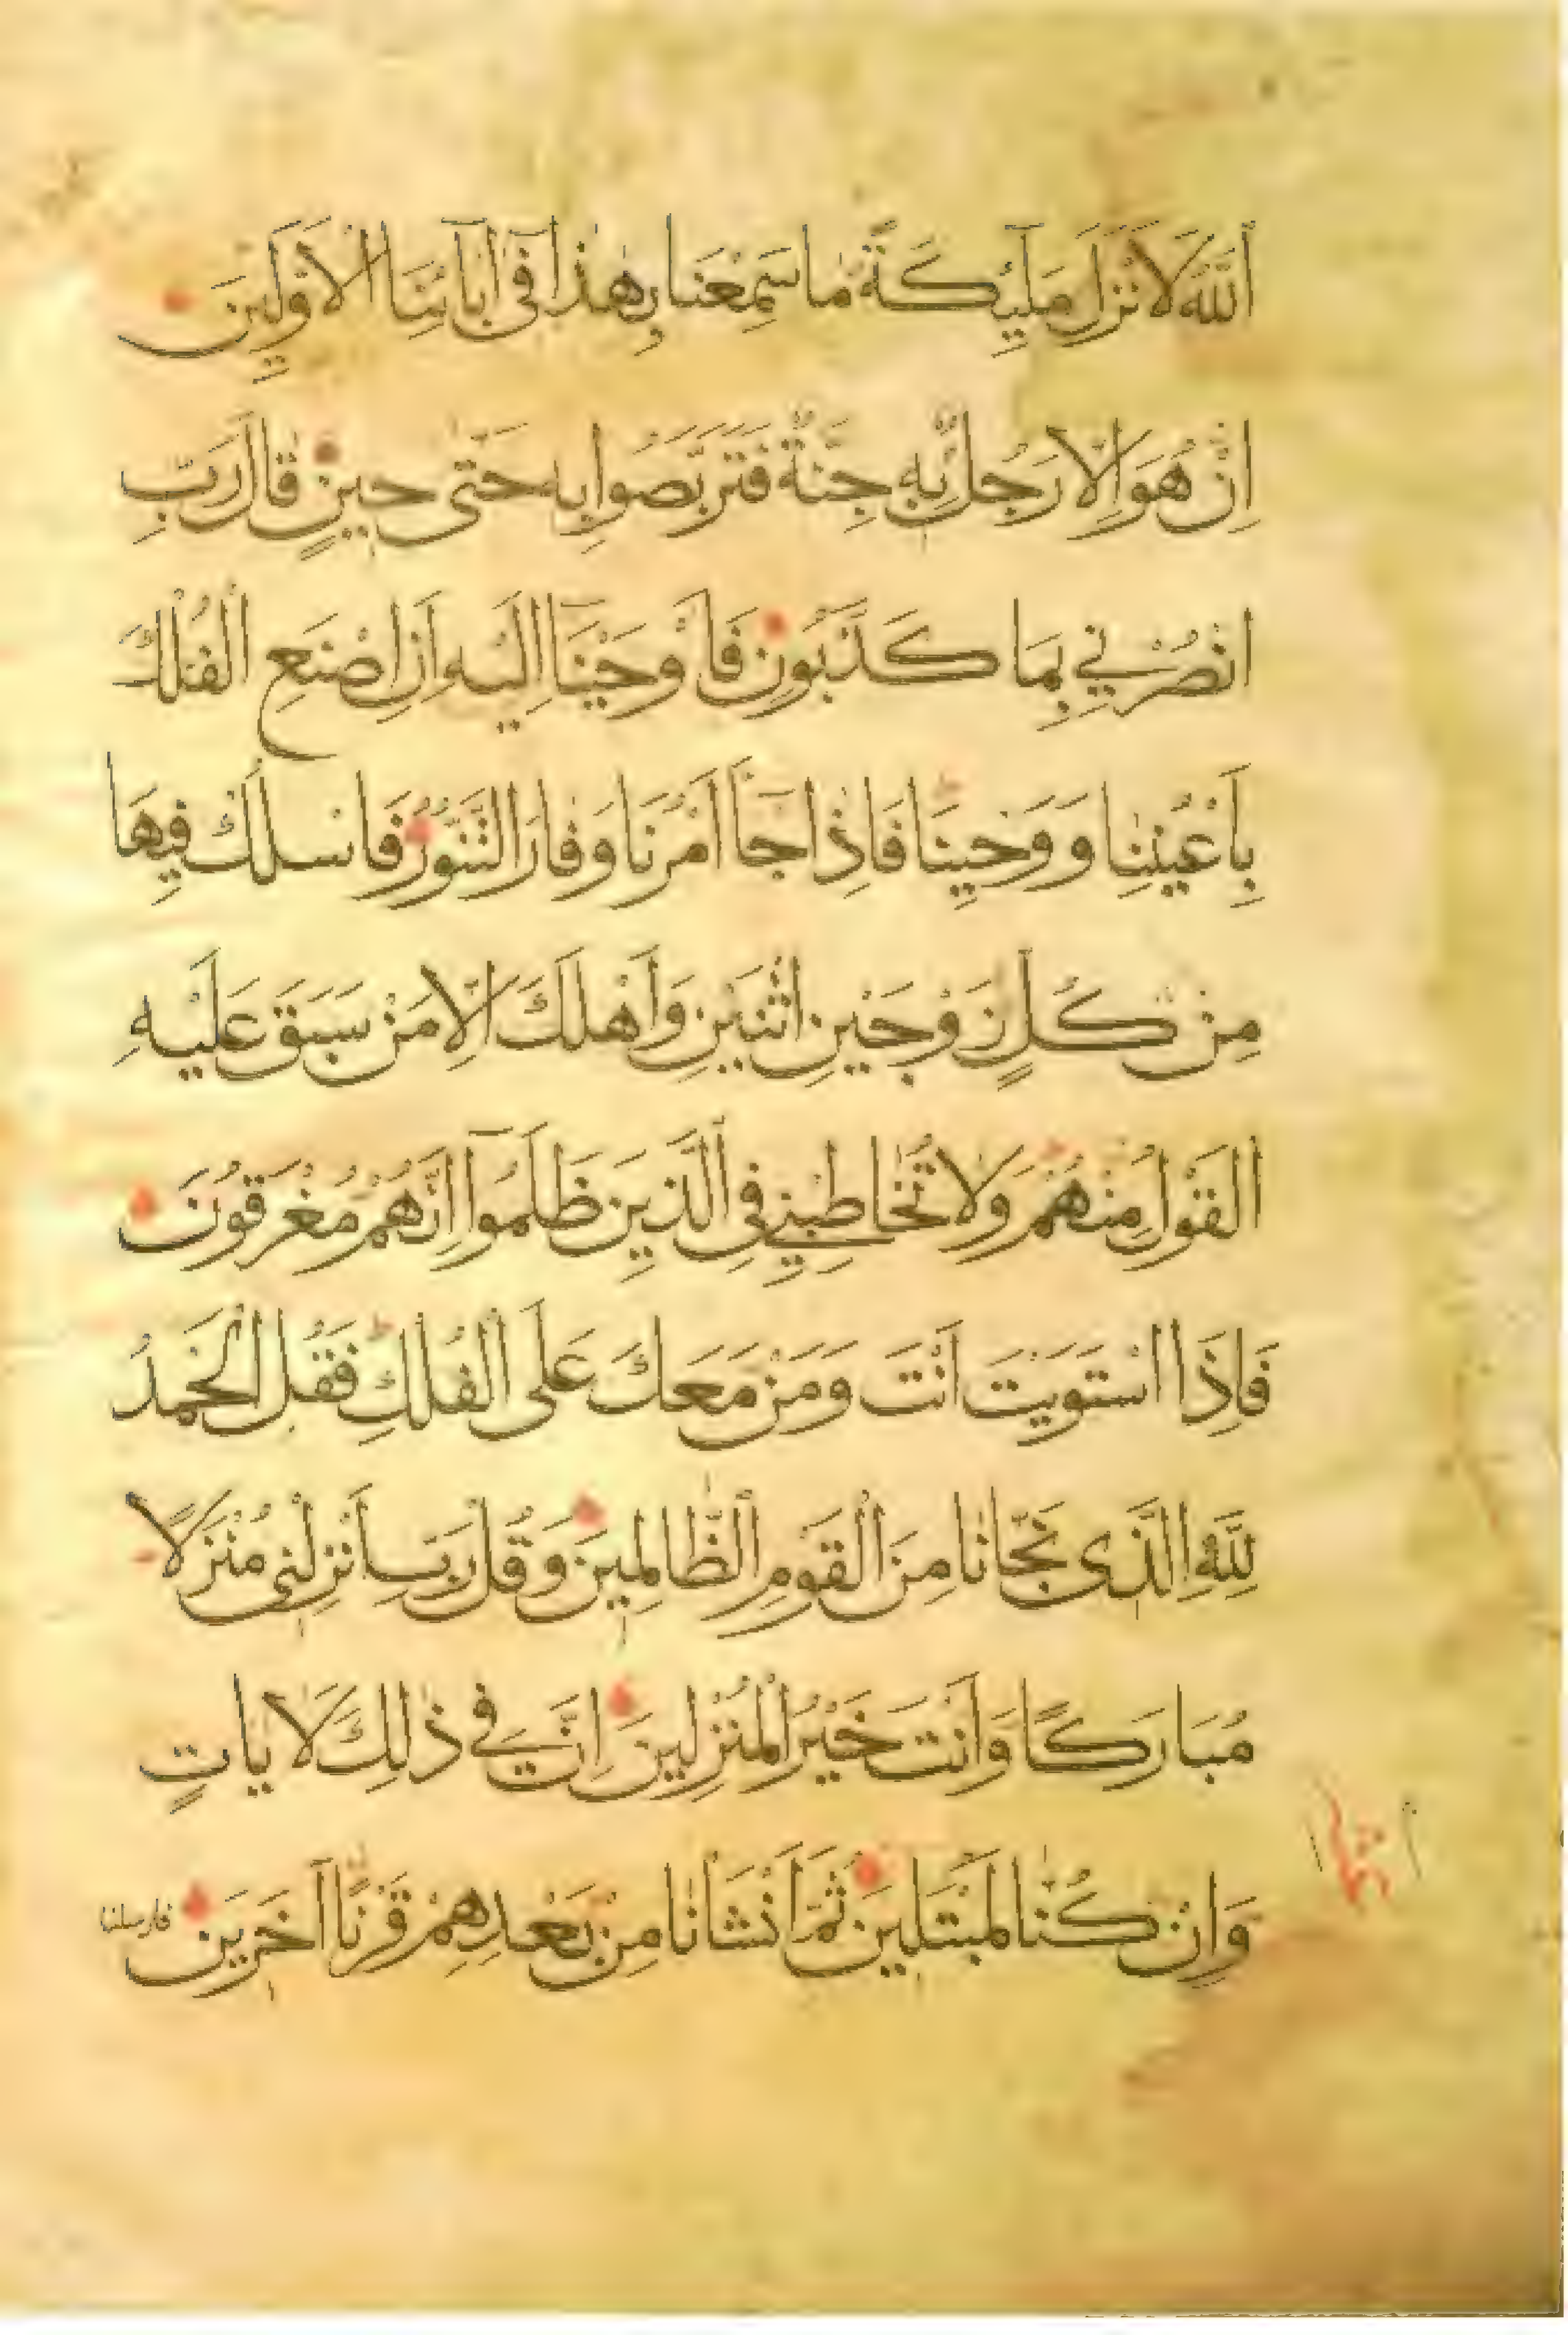 اَللّٰهُ لَاَنْزَلَ مَلٰٓئِكَةً مَا سَمِعْنَا بِهٰذَا فٓى اٰبَآئِنَا الْاَوَّلِينَ
اِنْ هُوَ اِلَّا رَجُلٌ بِهِ جِنَّةٌ فَتَرَبَّصُوا بِهِ حَتّٰى حِينٍ قَالَ رَبِّ
انْصُرْنِي بِمَا كَذَّبُونِ فَاَوْحَيْنَآ اِلَيْهِ اَنِ اصْنَعِ الْفُلْكَ
بِاَعْيُنِنَا وَوَحْيِنَا فَاِذَا جَآءَ اَمْرُنَا وَفَارَ التَّنُّورُ فَاسْلُكْ فِيهَا
مِنْ كُلٍّ زَوْجَيْنِ اثْنَيْنِ وَاَهْلَكَ اِلَّا مَنْ سَبَقَ عَلَيْهِ
الْقَوْلُ مِنْهُمْ وَلَا تُخَاطِبْنِي فِي الَّذِينَ ظَلَمُٓوا اِنَّهُمْ مُغْرَقُونَ
فَاِذَا اسْتَوَيْتَ اَنْتَ وَمَنْ مَعَكَ عَلَى الْفُلْكِ فَقُلِ الْحَمْدُ
لِلّٰهِ الَّذٖى نَجّٰانَا مِنَ الْقَوْمِ الظَّالِمٖينَ وَقُلْ رَبِّ اَنْزِلْنٖى مُنْزَلًا
مُبَارَكًا وَاَنْتَ خَيْرُ الْمُنْزِلِينَ اِنَّ فِي ذٰلِكَ لَاٰيَاتٍ
وَاِنْ كُنَّا لَمُبْتَلٖينَ ثُمَّ اَنْشَاْنَا مِنْ بَعْدِهِمْ قَرْنًا اٰخَرٖينَ
فارسلنا